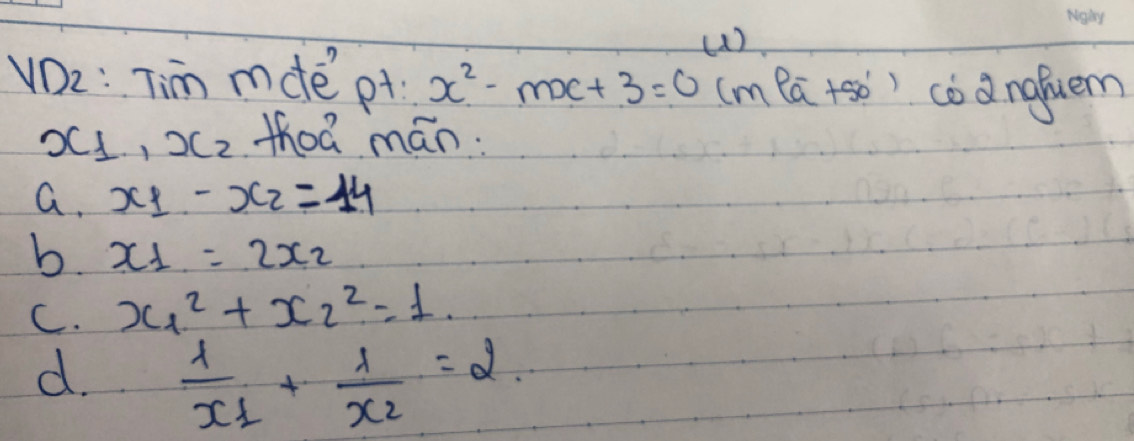 Ngày
(1)
VD2: Tìm m để pt: x² - mx + 3 = 0 (m là t số) có 2 nghiệm
x1, x2 thoả mãn:
a. x1 - x2 = 14
b. x1 = 2x2
c. x1² + x2² = 1.
d. 1/x1 + 1/x2 = 2.